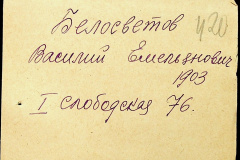 Белосветов
Василий Емельянович
1903
I слободская 76.